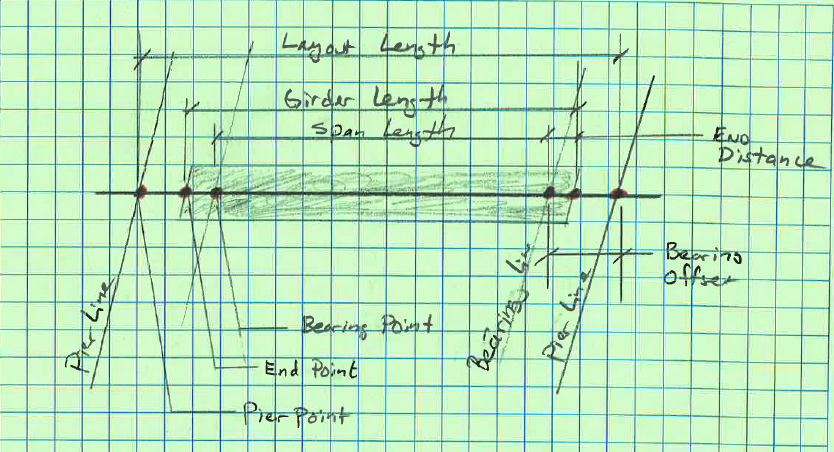 Layout Length
Girder Length
Span Length
END
Distance
Bearing
Offset
Bearing Line
Pier Line
Pier Line
Bearing Point
End Point
Pier Point